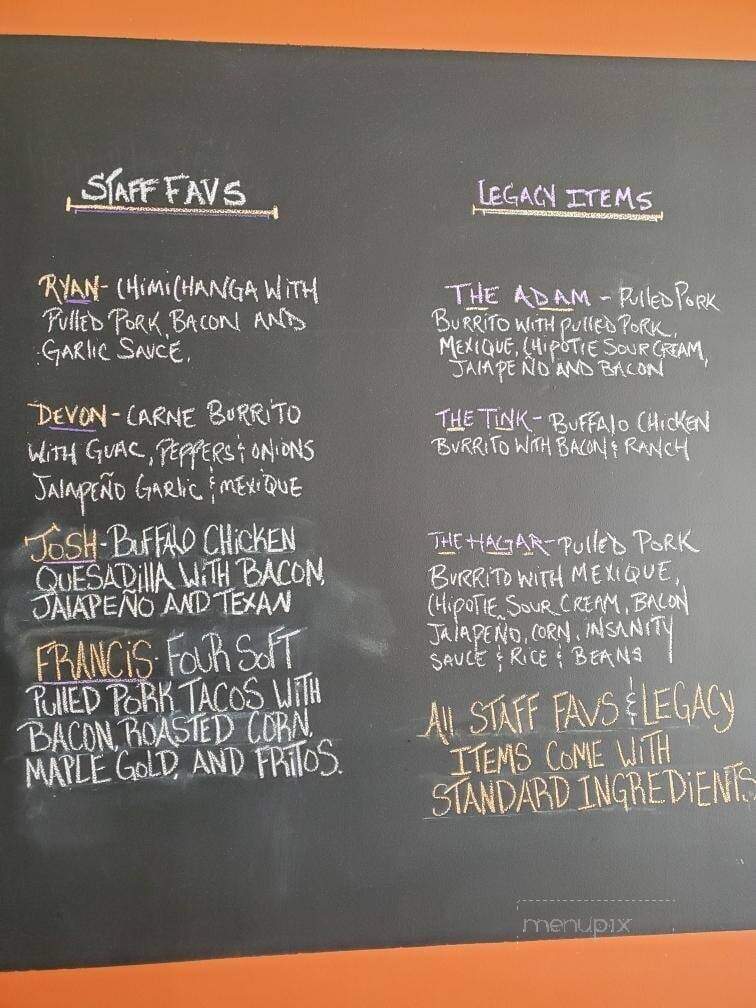 STAFF FAVS
RYAN- CHIMICHANGA WITH
PULLED PORK, BACON AND
GARLIC SAUCE.
DEVON- CARNE BURRITO
WITH GUAC, PEPPERS & ONIONS
JALAPEÑO GARLIC & MEXIQUE
JOSH- BUFFALO CHICKEN
QUESADILLA WITH BACON,
JALAPEÑO AND TEXAN
FRANCIS- FOUR SOFT
PULLED PORK TACOS WITH
BACON, ROASTED CORN,
MAPLE GOLD, AND FRITOS.
LEGACY ITEMS
THE ADAM - PULLED PORK
BURRITO WITH PULLED PORK,
MEXIQUE, CHIPOTLE SOUR CREAM,
JALAPEÑO AND BACON
THE TINK- BUFFALO CHICKEN
BURRITO WITH BACON & RANCH
THE HAGAR- PULLED PORK
BURRITO WITH MEXIQUE,
CHIPOTLE SOUR CREAM, BACON
JALAPEÑO, CORN, INSANITY
SAUCE & RICE & BEANS
All STAFF FAVS & LEGACY
ITEMS COME WITH
STANDARD INGREDIENTS
menupix